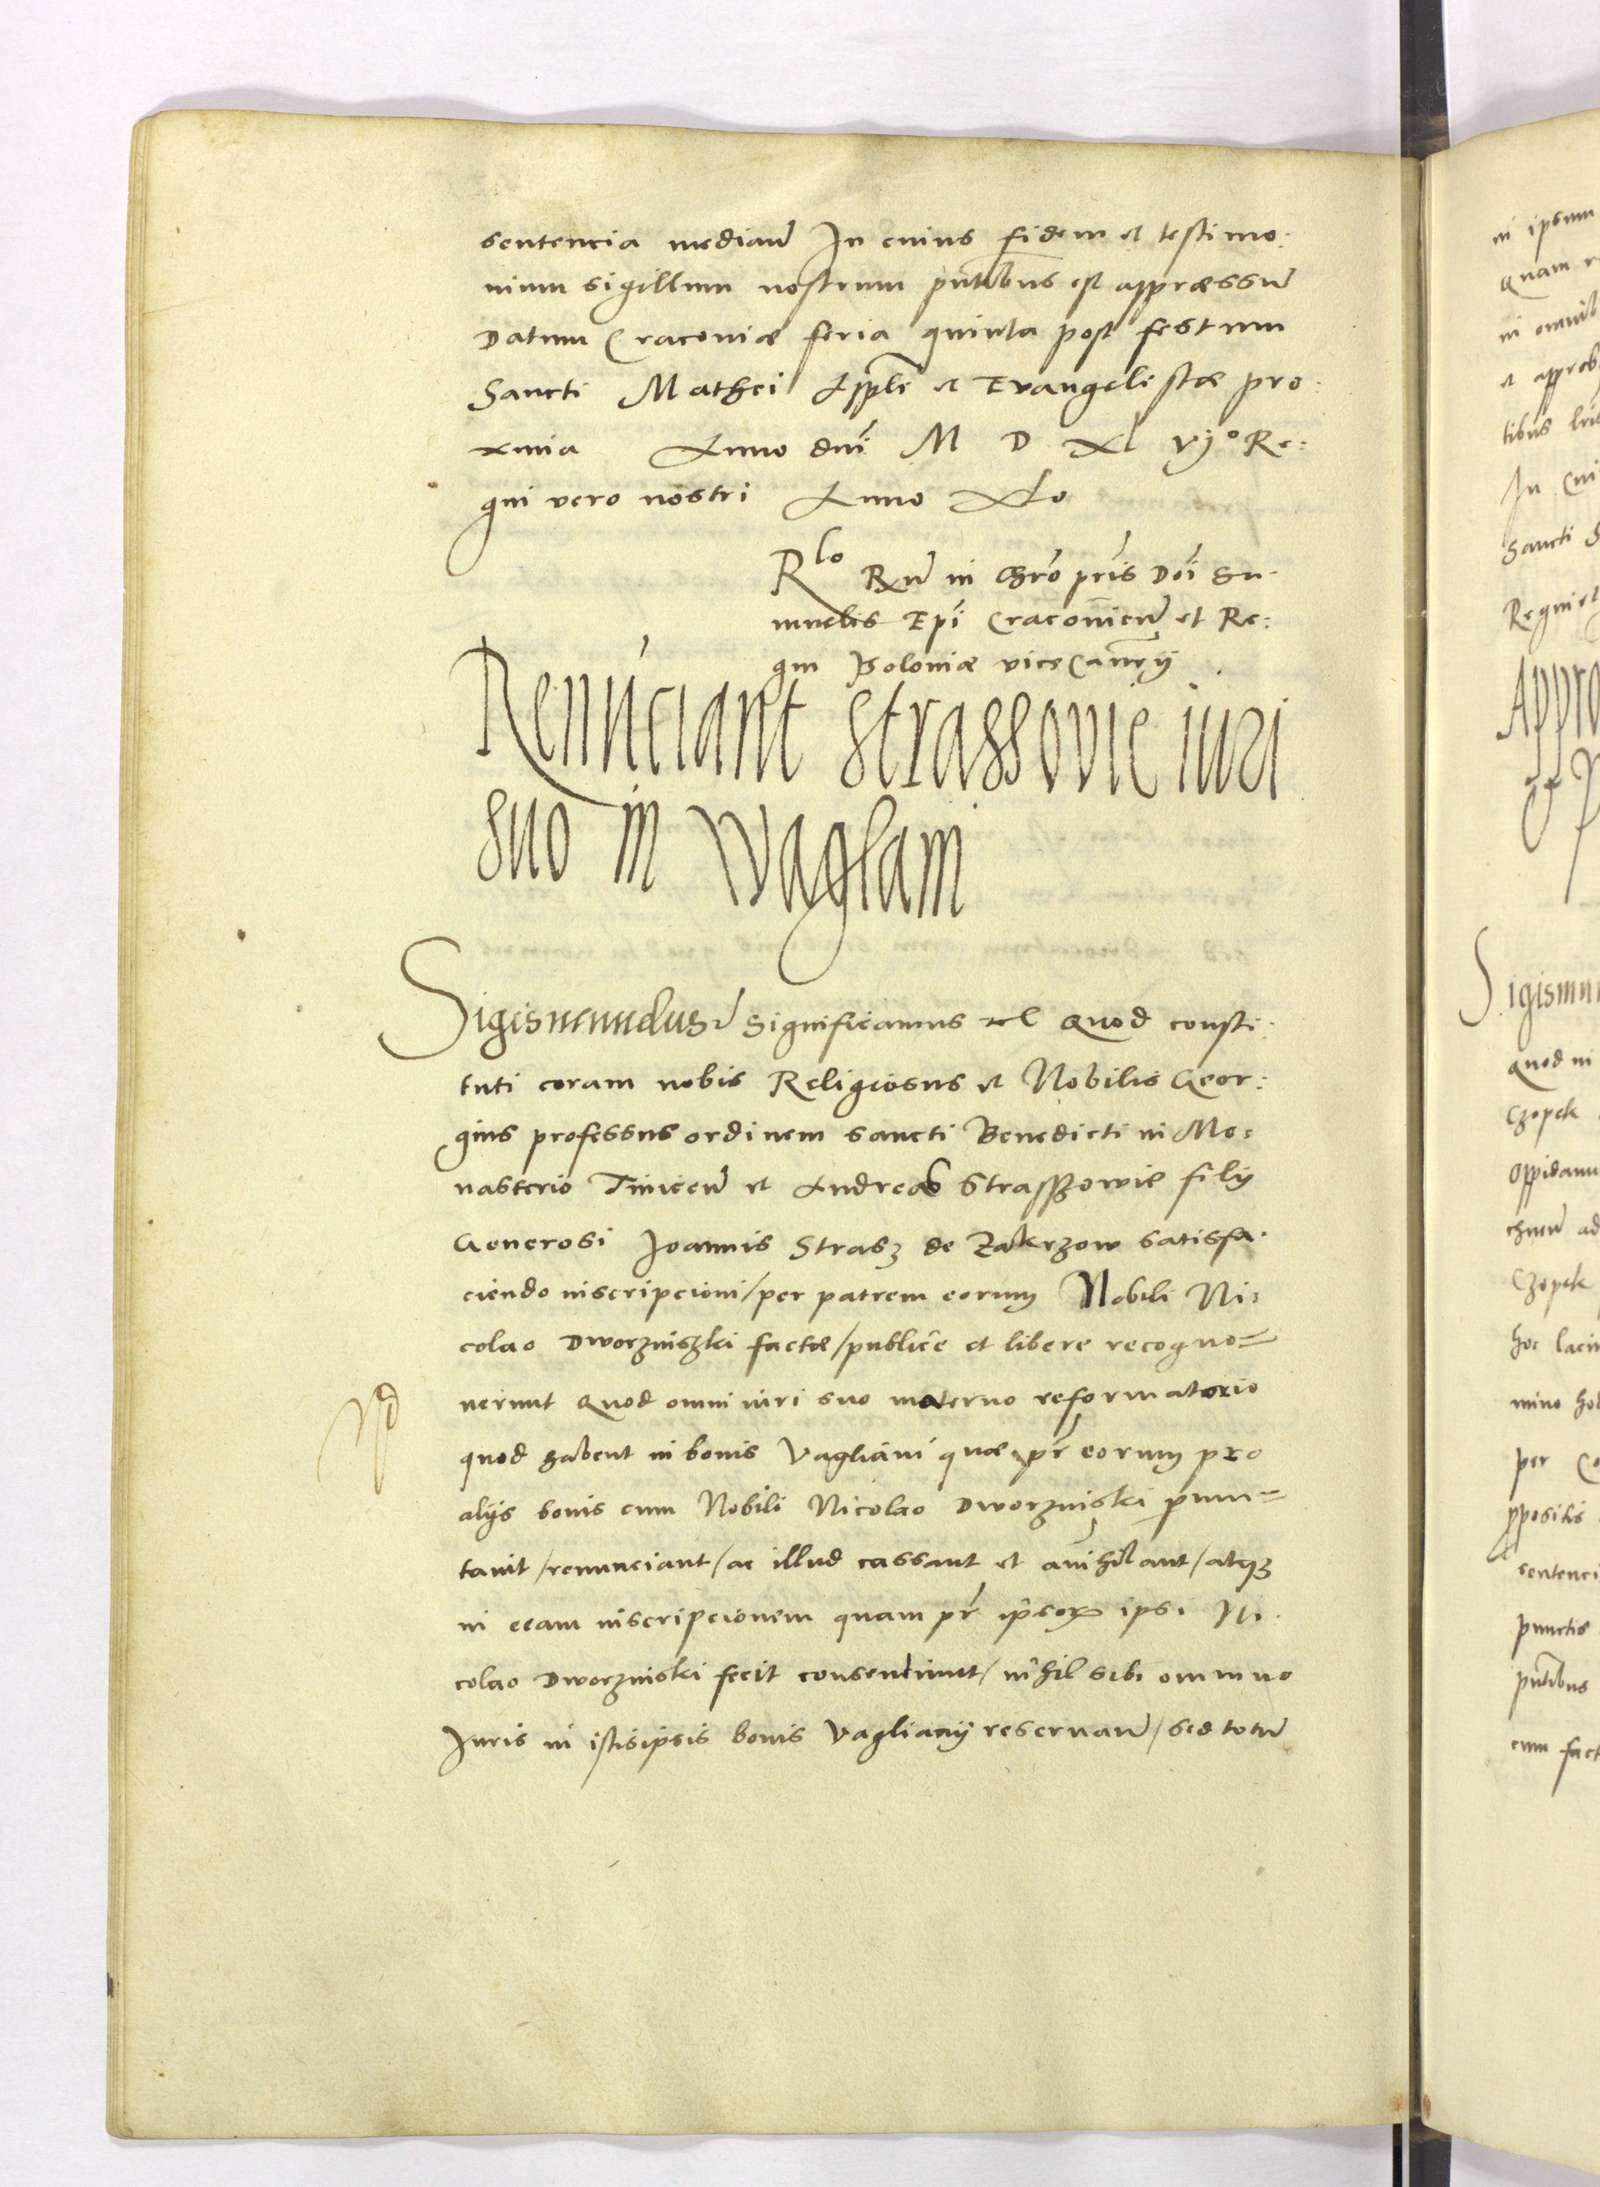 sentencia median̄ In cuius fidem et testimo:
nium sigillum nostrum pn̄tibus est appræssum̄
Datum Cracoviæ feria quinta post festum
Sancti Mathei Ap̄li et Evangelistæ pro
xima Anno dn̄i M D XL VIJº Re:
gni vero nostri Anno XLo
Rlo Rn̄ in Chr̄o pr̄is Dn̄i Sa
muelis Ep̄i Cracovien̄ et Re:
gni Poloniæ viceCan̄rij
Renunciant Strassovie iuri
suo in Waglani
Sigismundus significamus etc Quod consti:
tuti coram nobis Religiosus et Nobilis Geor:
gius professus ordinem sancti Benedicti in Mo:
nasterio Tinicen̄ et Andreas Straszowie filij
Generosi Joannis Strasz de Zakrzow satisfa:
ciendo inscripcioni/per patrem eorum Nobili Ni:
colao Dworzniszki factæ/publice et libere recogno=
verunt Quod omni iuri suo materno reformatorio
quod habent in bonis Vagliani quæ pr̄ eorum pro
alijs bonis cum Nobili Nicolao Dworzniski pmu=
tavit/renunciant/ac illud cassant et annihilant/atqȝ
in eam inscripcionem quam pr̄ ip̄soꝝ ipsi Ni:
colao Dworzniski fecit consentiunt/nihil sibi omnino
Iuris in istisipsis bonis Vaglianij reservan̄/sed totum̄
in ipsum
Quam
in omnib
et approb
tibus
In Cui
Sancti S
Regni
Appro
Sigismun
Quod in
Czopek
Oppidanu
ad
Czopek
hoc
per
ppositis
sentenci
punctis
pn̄tibus
cum fact